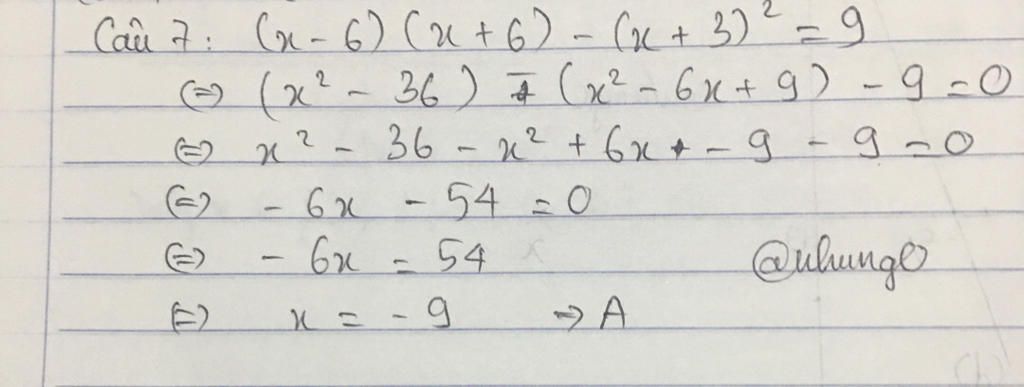 Câu 7: (x - 6)(x + 6) - (x + 3)² = 9
⇔ (x² - 36) - (x² - 6x + 9) - 9 = 0
⇔ x² - 36 - x² + 6x - 9 - 9 = 0
⇔ - 6x - 54 = 0
⇔ - 6x = 54
@nhunge
⇔ x = - 9 → A